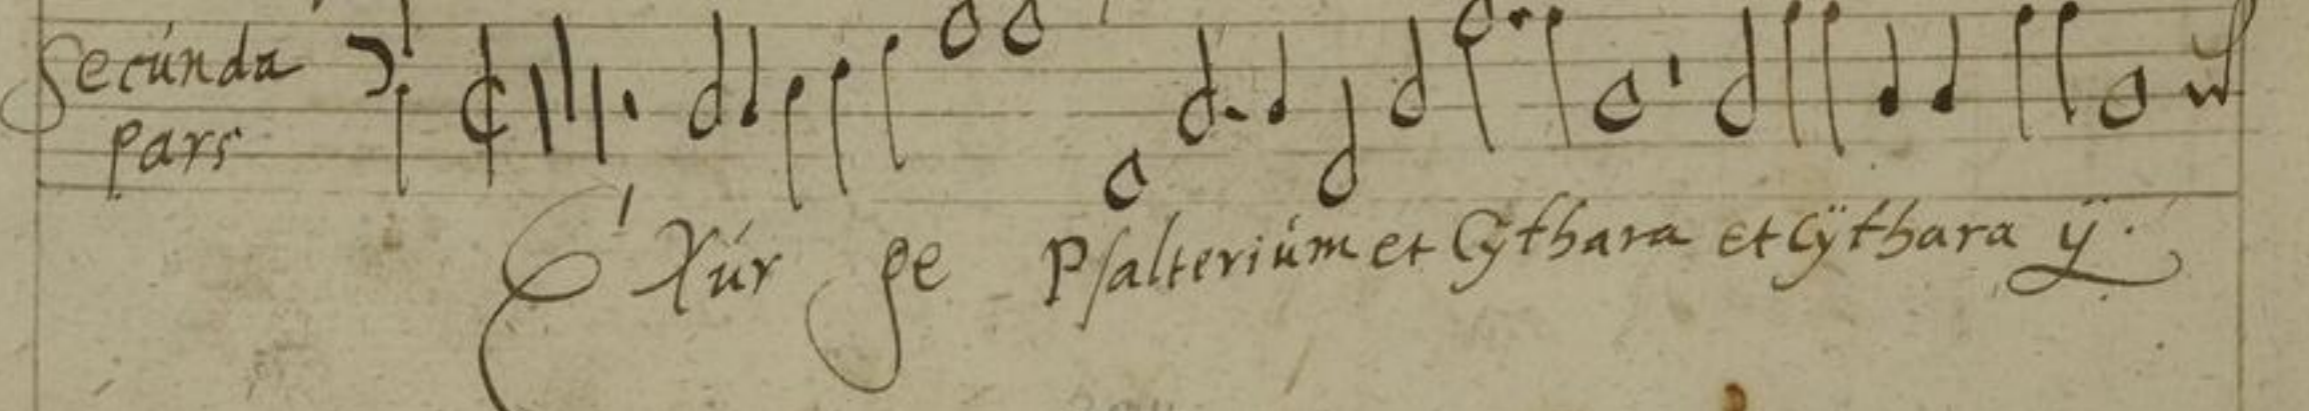 Secúnda
pars
EXúr ge Psalteriúm et Cÿthara et Cÿthara ÿ.